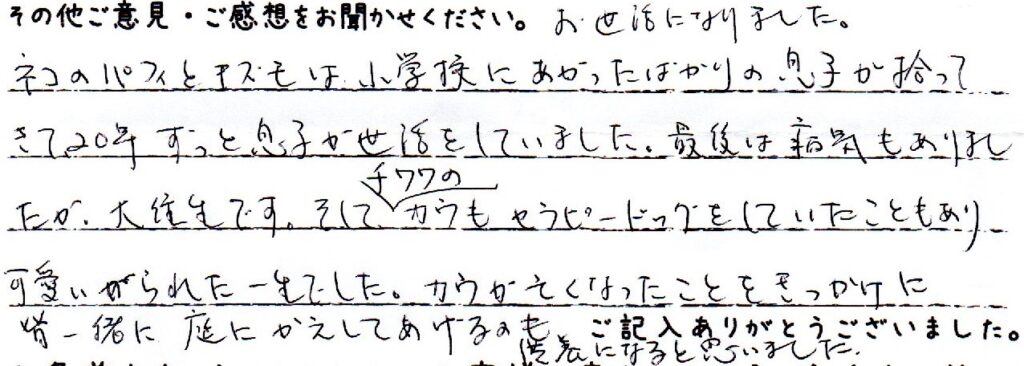 その他ご意見・ご感想をお聞かせください。お世話になりました。
ネコのパフィとキズモは小学校にあがったばかりの息子が拾って
きて、20年ずっと息子が世話をしていました。最後は病気もありまし
たが、大往生です。そして、チワワのカウもセラピードッグをしていたこともあり
可愛いがられた一生でした。カウが亡くなったことをきっかけに
皆一緒に庭にかえしてあげるのも ご記入ありがとうございました。
供養になると思いました。